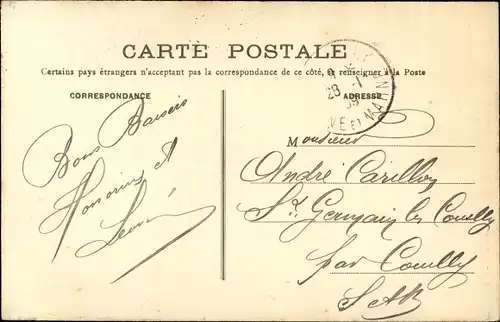 CARTE POSTALE
Certains pays étrangers n'acceptant pas la correspondance de ce côté, se renseigner à la Poste
CORRESPONDANCE
ADRESSE
28 -1
09
ET MARNE
Bons Baisers
Honorine et
Monsieur
André Carillon
St Germain les Couilly
par Couilly
S et M